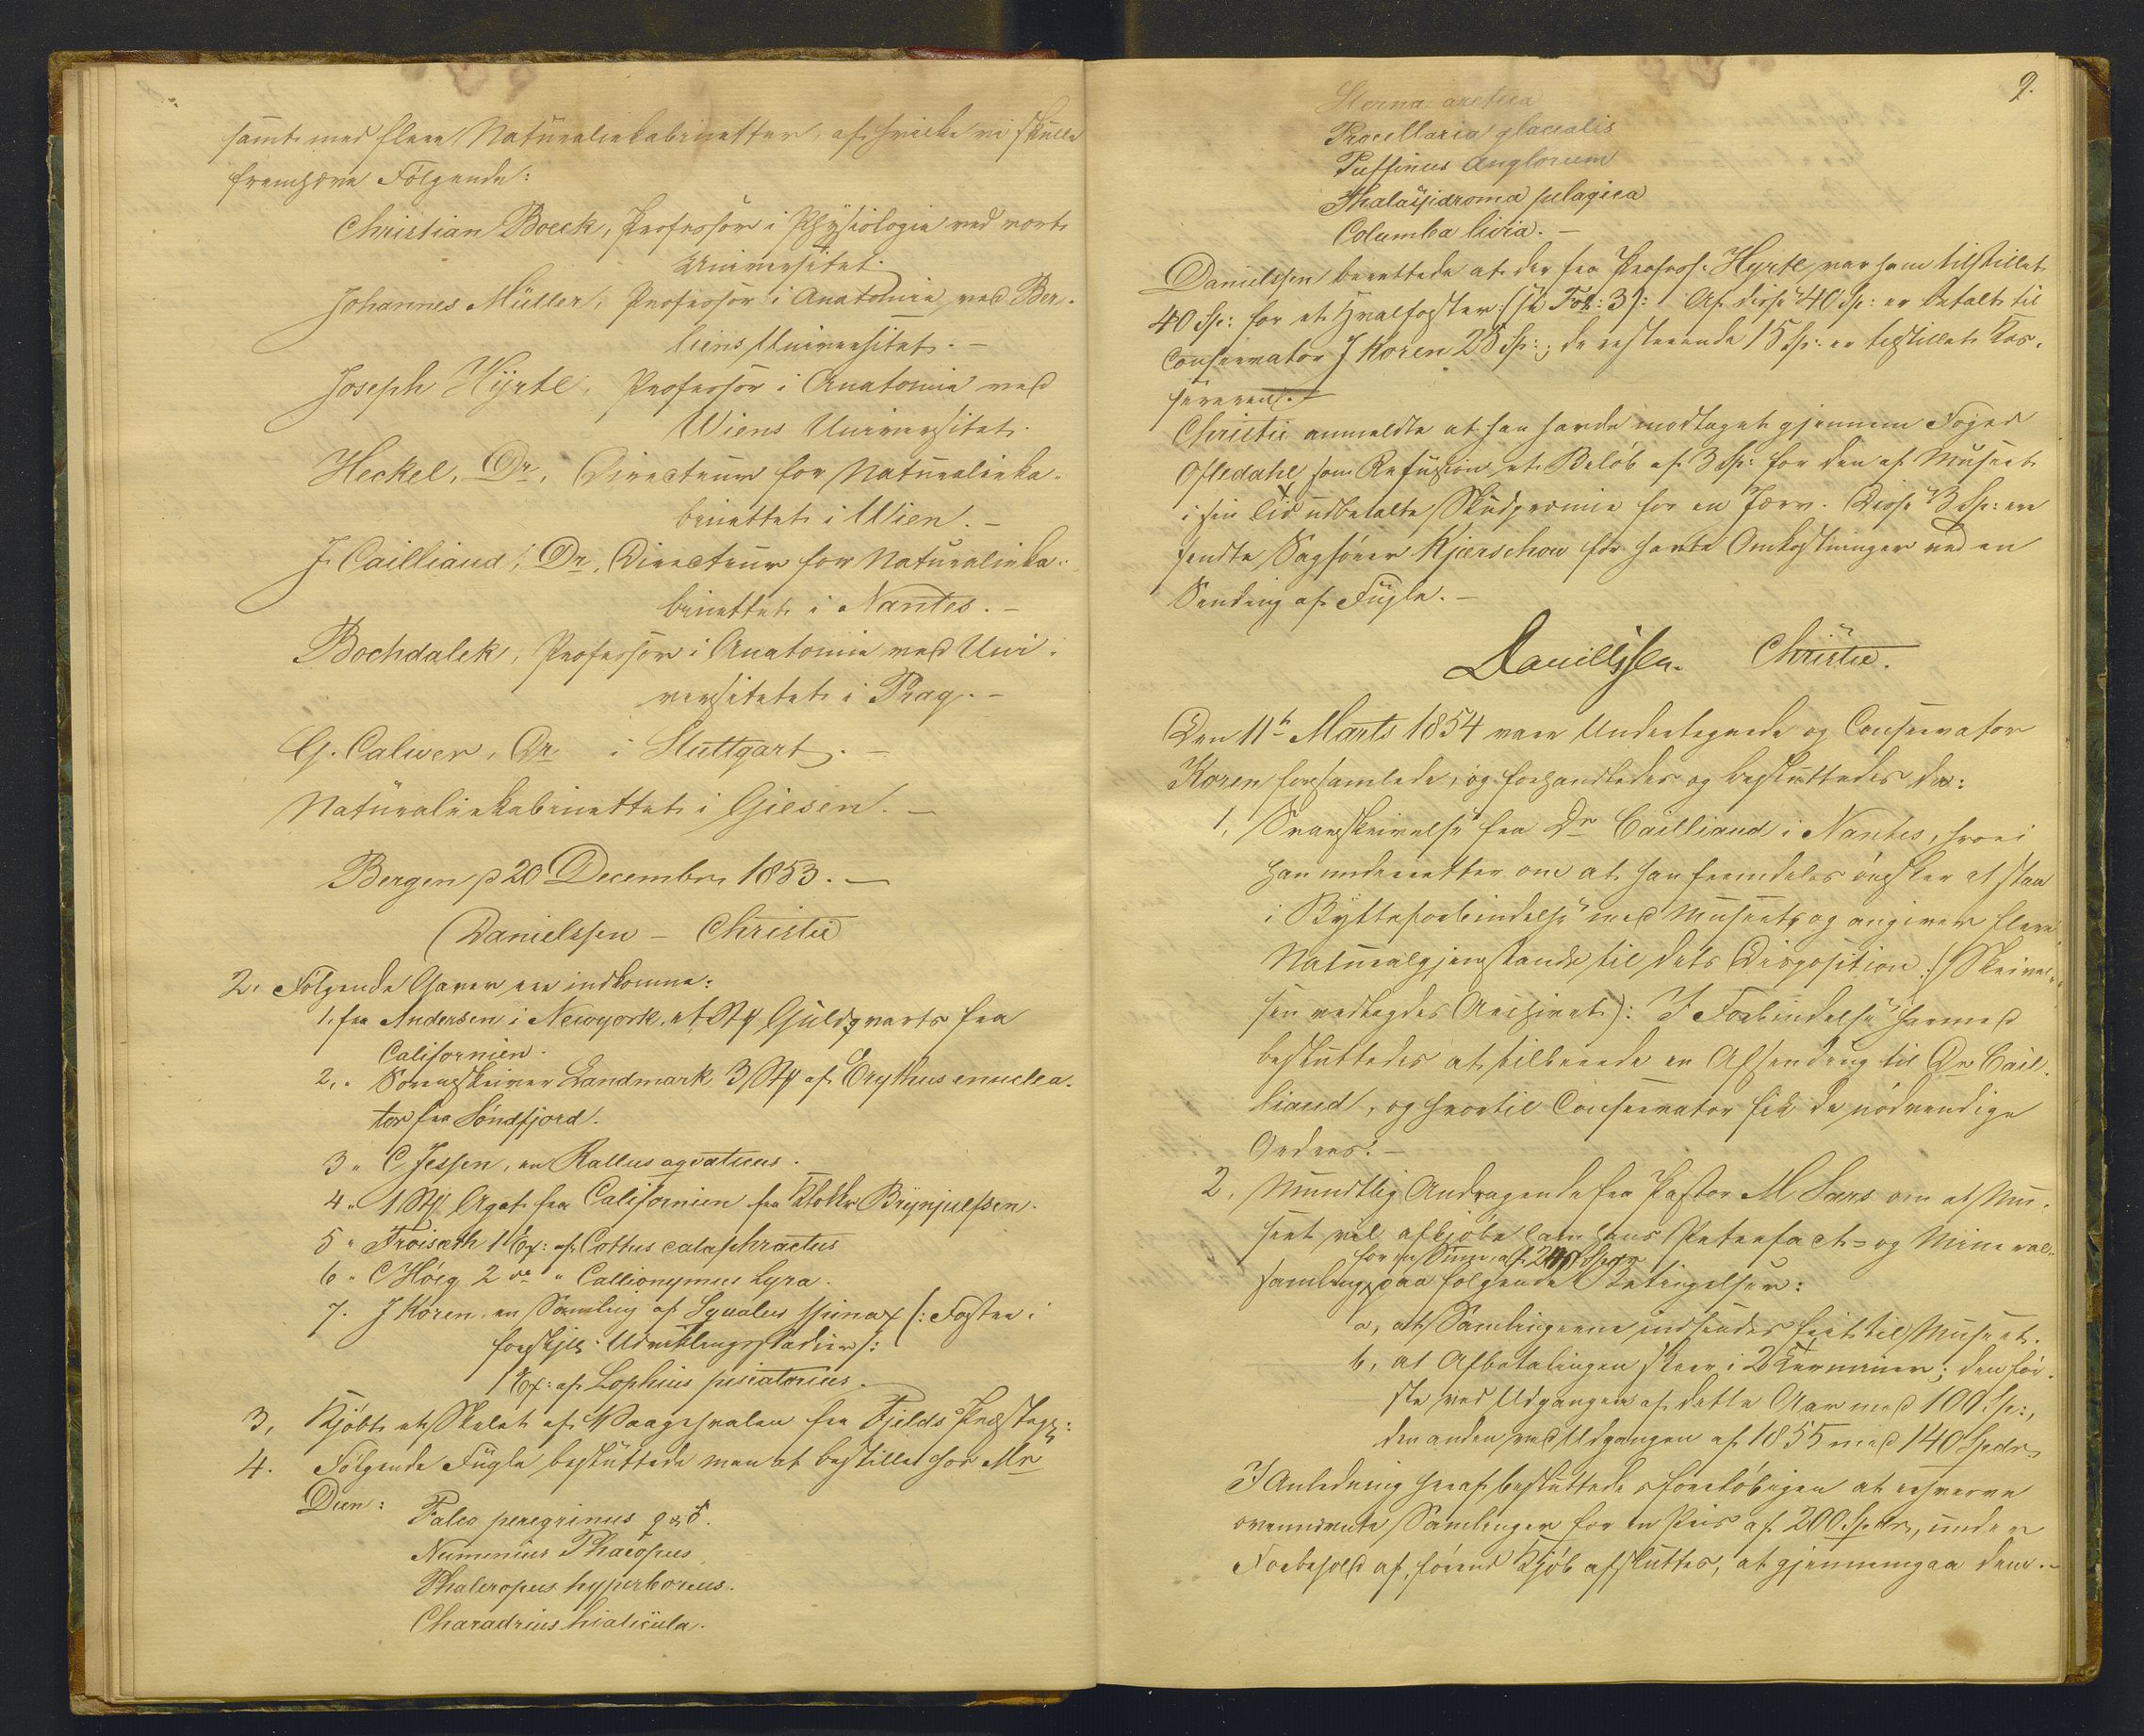 samt med flere Naturaliekabinetter, af hvilke vi skulle
fremhæve Følgende:
Christian Boeck, Professor i Physiologie ved vort
Universitet.
Johannes Müller, Professor i Anatomie ved Ber-
lins Universitet. —
Joseph Hyrtl, Professor i Anatomie ved
Wiens Universitet.
Heckel, Dr, Directeur for Naturalieka-
binettet i Wien. —
J. Cailliaud, Dr, Directeur for Naturalieka-
binettet i Nantes. —
Bochdalek, Professor i Anatomie ved Uni-
versitetet i Prag. —
G. Calwer, Dr i Stuttgart. —
Naturaliekabinettet i Giesen. —
Bergen p 20 Decembr 1853. —
Danielssen – Christie
2. Følgende Gaver ere indkomne:
1, fra Andersen i Newyork, et Stk Guldqvarts fra
Californien.
2, " Sorenskriver Landmark 3 Stk af Erythus enuclea-
tor fra Söndfjord.
3 " C Jessen, en Rallus aqvaticus.
4 " 1 Stk Agat fra Californien fra Brynjulfsen.
5 " Troisæth 1 Ex: af Cottus cataphractus
6 " C Höeg 2 do " Callionymus Lyra.
7. J Koren, en Samling af Squalus spinax (: Fostre i
forskjell: Udviklingsstadier):
1 Ex: af Lophius piscatorius.
3, Kjöbt et Skelet af Vaagehvalen fra Fjelds Præstegj:
4. Følgende Fugle besluttede man at bestille hos Mr
Duen: Falco peregrinus ♀ & ♂.
Numenius Phæopus
Phaleropus hyperboreus.
Charadrius hiaticula.
9.
Sterna arctica
Procellaria glacialis
Puffinus Anglorum
Thalassidroma pelagica
Columba livia. —
Danielssen berettede at der fra Profess: Hyrtl var ham tilstillet
40 Sp: for et Hvalfoster (se Fol: 3): Af disse 40 Sp: er betalt til
Conservator J Koren 25 Sp:; de resterende 15 Sp: er tilstillet Kas-
sereren. —
Christie anmeldte at han havde modtaget gjennem Foged
Ofledahl som Refusion et Belöb af 3 Sp: for den af Museet
i sin Tid udbetalte Skudpræmie for en Jærv. Disse 3 Sp: ere
sendte Sagförer Kjerschow for havte Omkostninger ved en
Sending af Fugle. —
Danielssen. Christie.
Den 11te Marts 1854 vare Undertegnede og Conservator
Koren forsamlede, og forhandledes og besluttedes da:
1, Svarskrivelse fra Dr Cailliaud i Nantes, hvori
han underretter om at han fremdeles önsker at staa
i Bytteforbindelse med Museet, og angiver flere
Naturalgjenstande til dets Disposition. (: Skrivel-
sen vedlagdes Archivet): I Forbindelse hermed
besluttedes at tilberede en Afsending til Dr Cail-
liaud, og hvortil Conservator fik de nödvendige
Ordres. —
2, Mundtlig Andragende fra Pastor M Sars om at Mu-
seet vil afkjöbe ham hans Petrefact- og Mineral-
for en Sum af 240 Spdr
samling, paa følgende Betingelser:
a, at Samlingerne indsendes frit til Museet.
b, at Afbetalingen skeer i 2 Terminer; den før-
ste ved Udgangen af dette Aar med 100 Sp:,
den anden ved Udgangen af 1855 med 140 Spdr,
I Anledning heraf besluttedes foreløbigen at reservere
ovennævnte Samlinger for en Priis af 200 Spdr, under
Forbehold af, førend Kjöb afsluttes, at gjennemgaa dem. –